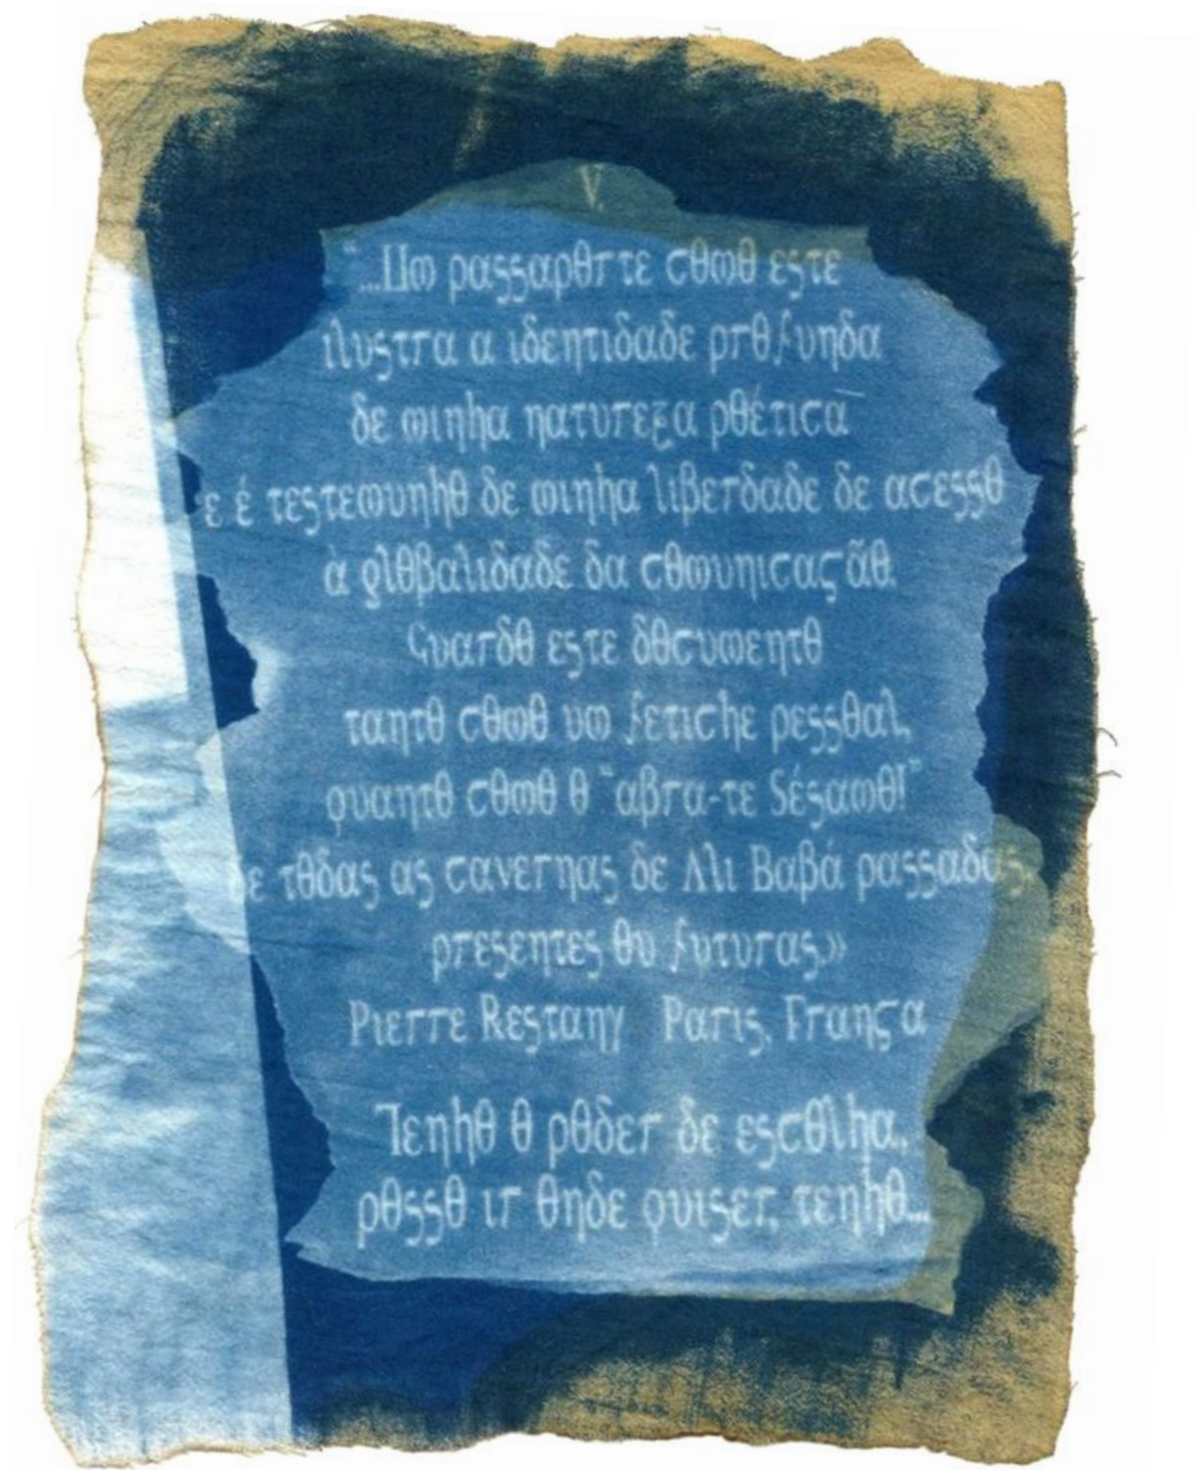 V
"...Um passaporte como este
ilustra a identidade profunda
de minha natureza poética
e é testemunho de minha liberdade de acesso
à globalidade da comunicação.
Guardo este documento
tanto como um fetiche pessoal,
quanto como o "abra-te Sésamo!"
de todas as cavernas de Ali Babá passadas,
presentes ou futuras.»
Pierre Restany Paris, França
Tenho o poder de escolha,
posso ir onde quiser, tenho...